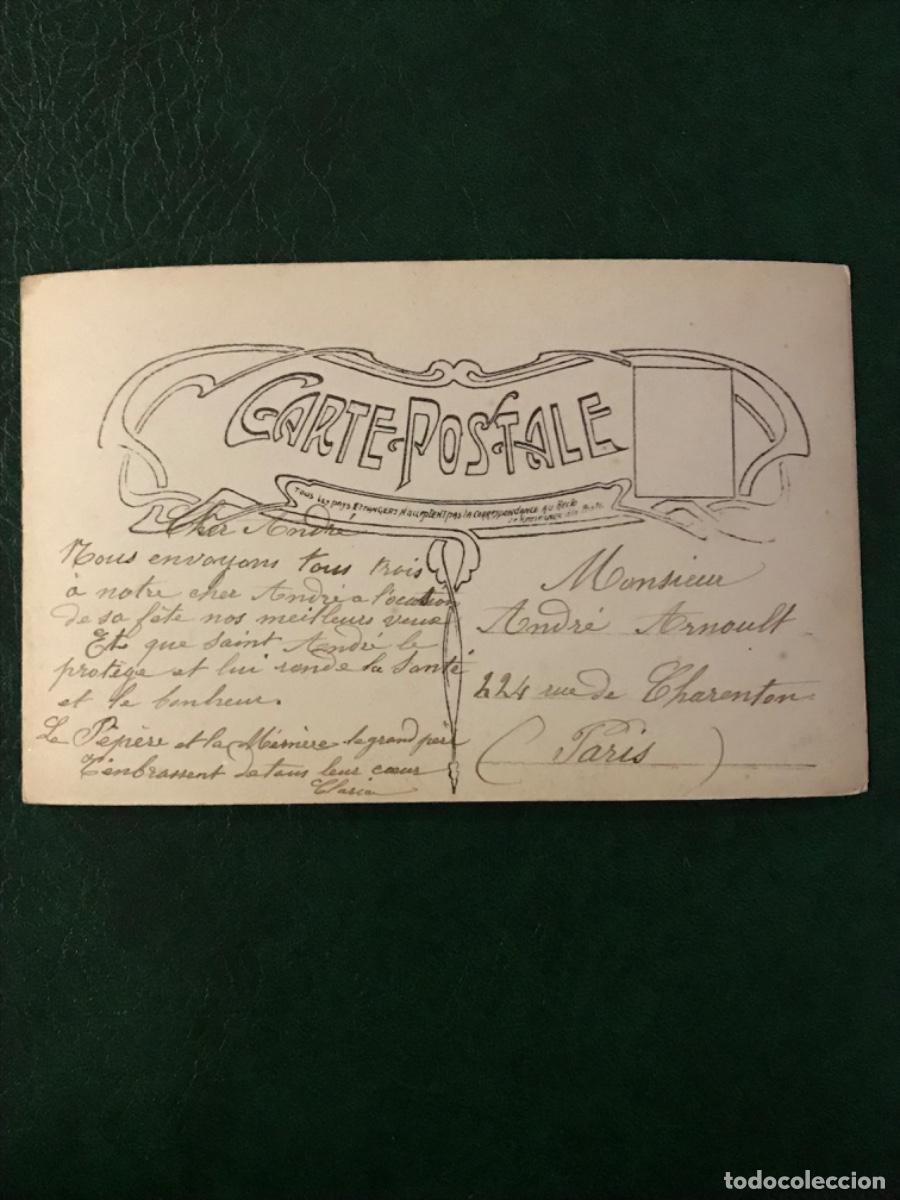 CARTE-POSTALE
TOUS LES PAYS ETRANGERS N'ACCEPTENT PAS LA CORRESPONDANCE AU RECTO
Cher André
Nous envoyons tous trois
à notre cher André a l'ocasion
de sa fête nos meilleurs veux
Et que saint André le
protège et lui rende la Santé
et le bonheur.
Le Pépère et la Mémère le grand père
T'enbrassent de tous leur cœur
Monsieur
André Arnoult
224 rue de Charenton
(Paris)
todocoleccion